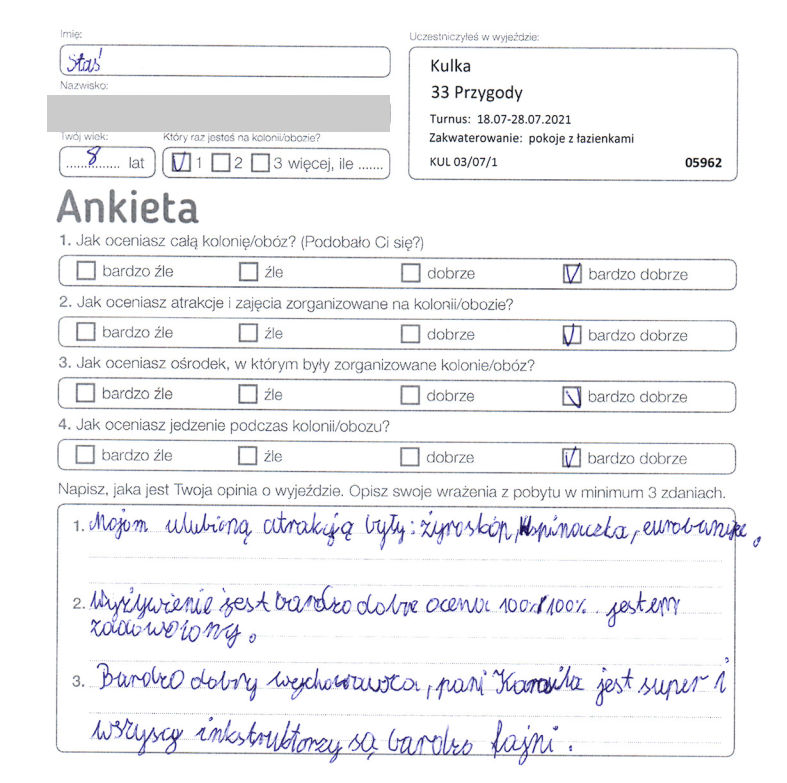 Imię:
Staś
Uczestniczyłeś w wyjeździe:
Kulka
33 Przygody
Turnus: 18.07-28.07.2021
Zakwaterowanie: pokoje z łazienkami
KUL 03/07/1 05962
Nazwisko:
Twój wiek: Który raz jesteś na kolonii/obozie?
8 lat 1 2 3 więcej, ile .......
Ankieta
1. Jak oceniasz całą kolonię/obóz? (Podobało Ci się?)
bardzo źle źle dobrze bardzo dobrze
2. Jak oceniasz atrakcje i zajęcia zorganizowane na kolonii/obozie?
bardzo źle źle dobrze bardzo dobrze
3. Jak oceniasz ośrodek, w którym były zorganizowane kolonie/obóz?
bardzo źle źle dobrze bardzo dobrze
4. Jak oceniasz jedzenie podczas kolonii/obozu?
bardzo źle źle dobrze bardzo dobrze
Napisz, jaka jest Twoja opinia o wyjeździe. Opisz swoje wrażenia z pobytu w minimum 3 zdaniach.
1. Mojom ulubioną atrakcją były: żyroskop, wspinaczka,
2. Wyżywienie jest bardzo dobre ocena 100%/100% jestem
zadowolony.
3. Bardzo dobry wychowawca, pani Kamila jest super i
wszyscy inkstruktorzy są bardzo fajni.